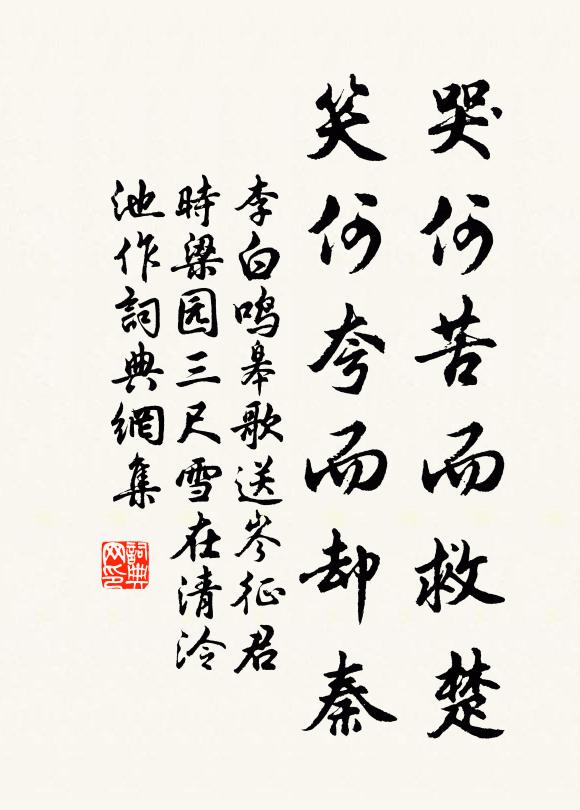 哭何苦而救楚
笑何夸而却秦
李白鸣皋歌送岑征君
時梁园三尺雪在清泠
池作詞典網集
詞典网印